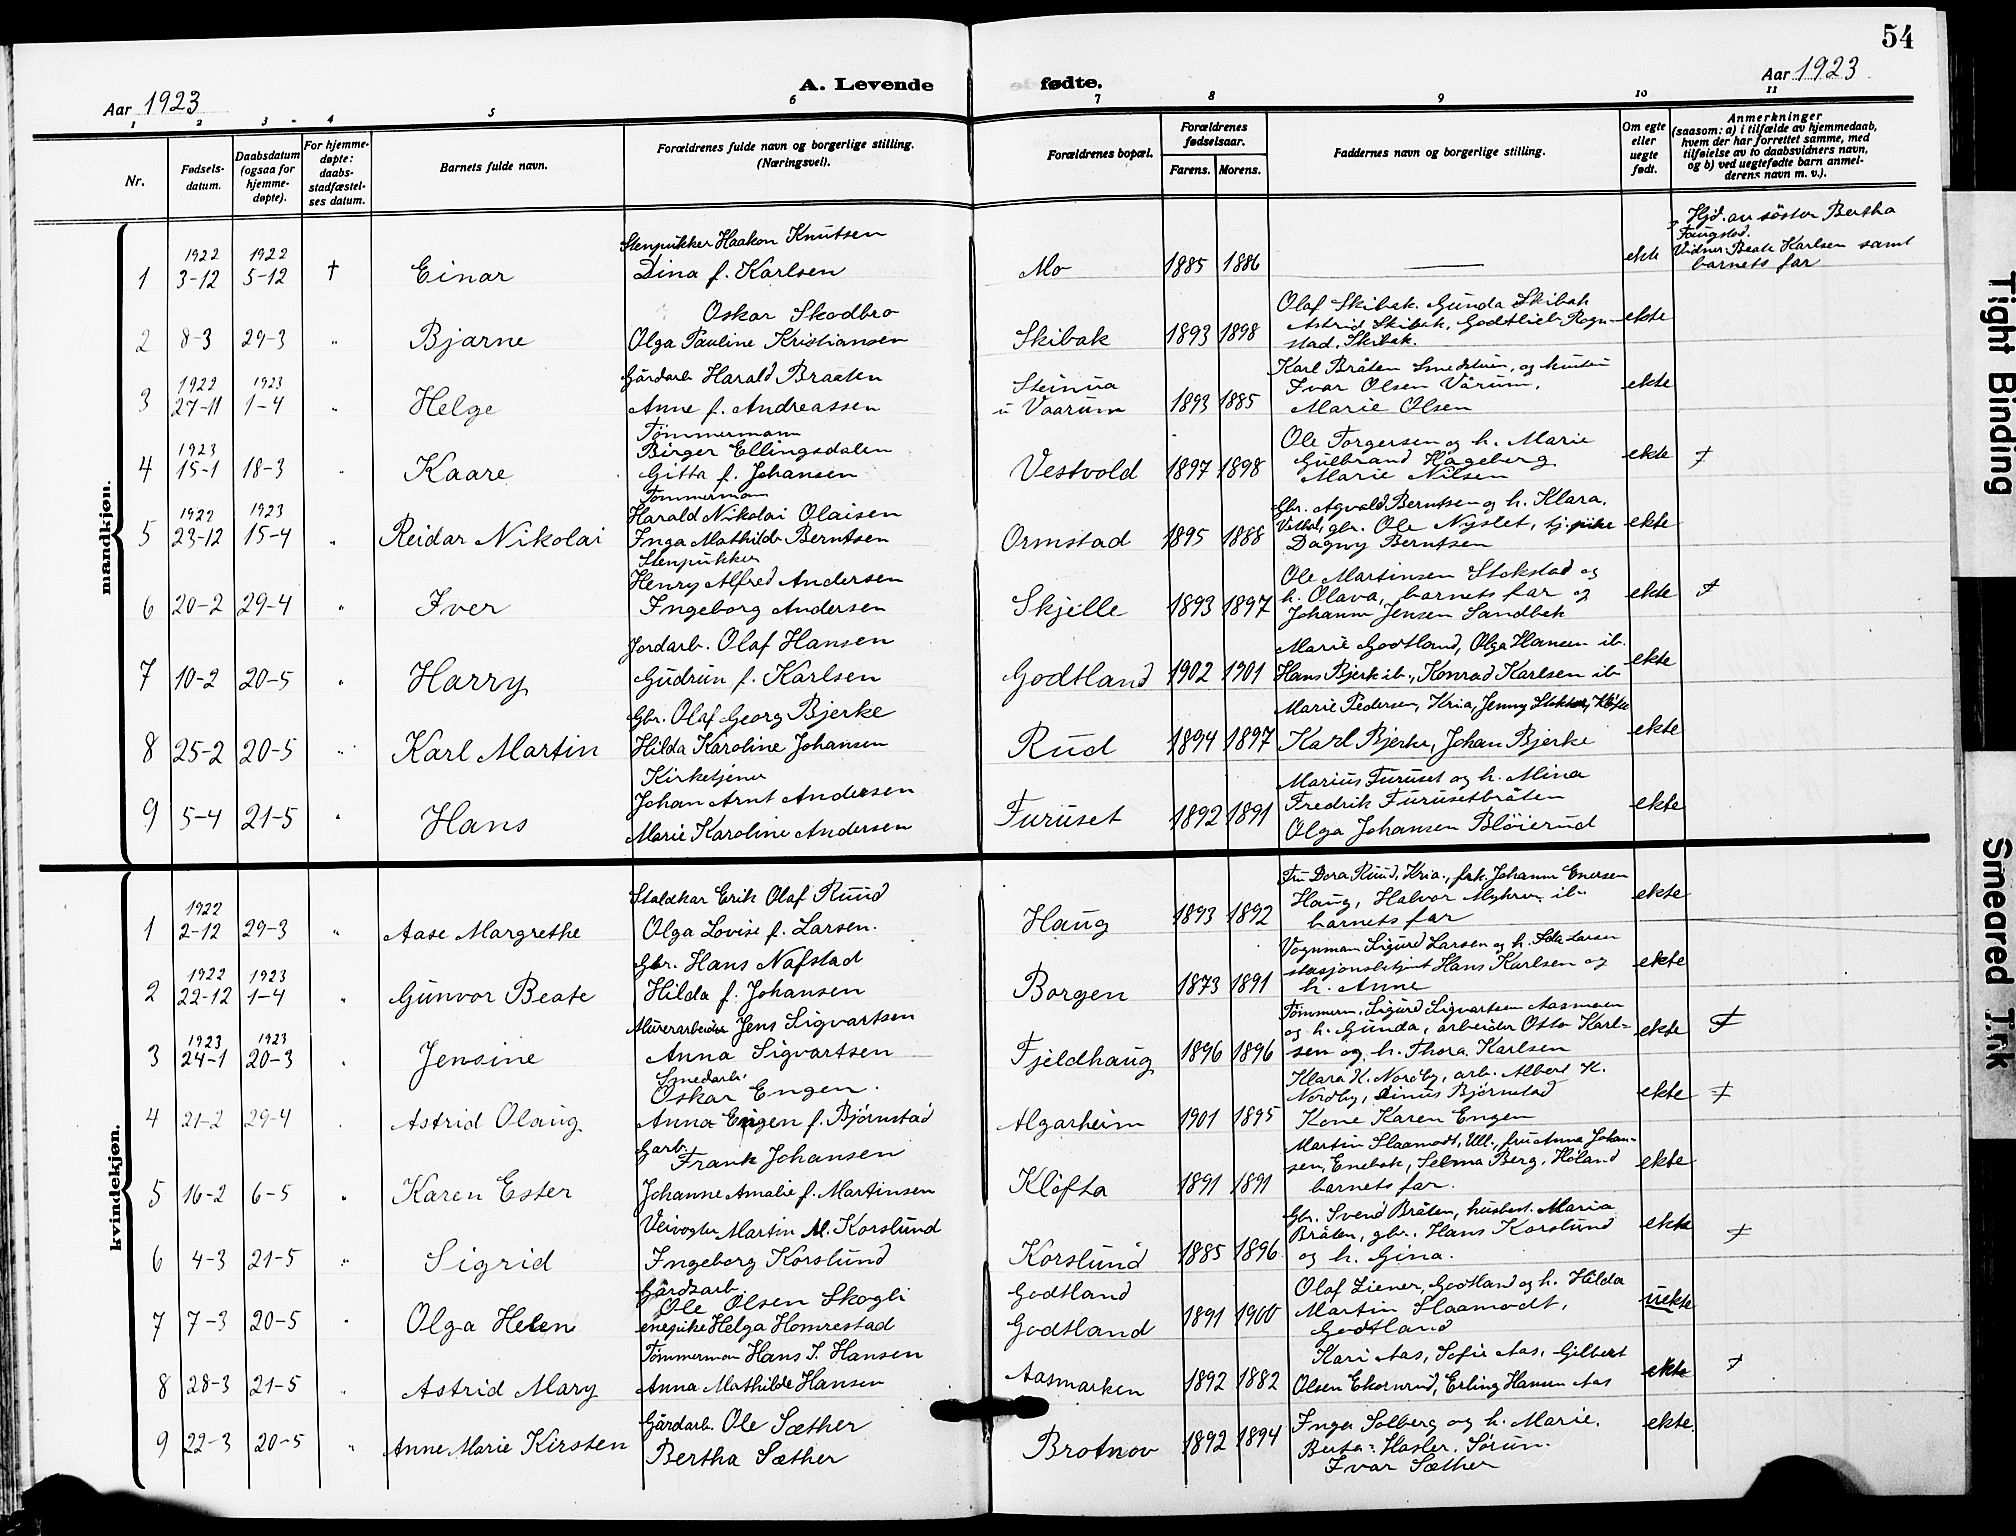 54
Aar 1923
A. Levende fødte.
Aar 1923
1 2 3 4 5 6 7 8 9 10 11
Nr.
Fødsels-
datum.
Daabsdatum
(ogsaa for
hjemme-
døpte).
For hjemme-
døpte:
daabs-
stadfæstel-
ses datum.
Barnets fulde navn.
Forældrenes fulde navn og borgerlige stilling.
(Næringsvei).
Forældrenes bopæl.
Forældrenes
fødselsaar.
Farens. Morens.
Faddernes navn og borgerlige stilling.
Om egte
eller
uegte
født.
Anmerkninger
(saasom: a) i tilfælde av hjemmedaab,
hvem der har forrettet samme, med
tilføielse av to daabsvidners navn,
og b) ved uegtefødte barn anmel-
derens navn m. v.).
mandkjøn.
Stenpukker Haakon Knutsen
Hjd. av söster Bertha
1922 1922
Vidner: Beate Karlsen samt
1 3-12 5-12 † Einar Dina f. Karlsen Mo 1885 1886 — ekte barnets far
Oskar Skodbro Olaf Skibak. Gunda Skibak
Astrid Skibak, Godtlieb Rogn-
2 8-3 29-3 " Bjarne Olga Pauline Kristiansen Skibak 1893 1898 stad, Skibak. ekte
Gårdarb. Harald Braaten Karl Bråten
1922 1923 Steinua Ivar Olsen Vårum,
3 27-11 1-4 " Helge Anne f. Andreassen u Vaarum 1893 1885 Marie Olsen ekte
Tømmermann
1923 Birger Ellingsdalen Ole Torgersen og h. Marie
Gulbrand Hageberg
4 15-1 18-3 " Kaare Gitta f. Johansen Vestvold 1897 1898 Marie Nilsen ekte
Tømmermann
1922 1923 Harald Nikolai Olaisen Gbr. Agvald Berntsen og h. Klara.
gbr. Ole Nyslet, tj. pike
5 23-12 15-4 " Reidar Nikolai Inga Mathilde Berntsen Ormstad 1895 1888 Dagny Berntsen ekte
Stenpukker
Henry Alfred Andersen Ole Martinsen Stokstad og
h. Olava, barnets far og
6 20-2 29-4 " Iver Ingeborg Andersen Skjelle 1893 1897 Johanne Jensen Sandbek ekte
Jordarb. Olaf Hansen Marie Godtland, Olga Hansen ib.
7 10-2 20-5 " Harry Gudrun f. Karlsen Godtland 1902 1901 Hans Bjerk ib., Konrad Karlsen ib ekte
Gbr. Olaf Georg Bjerke Marie Pedersen, Kria, Jenny
8 25-2 20-5 " Karl Martin Hilda Karoline Johansen Rud 1894 1897 Karl Bjerke, Johan Bjerke ekte
Kirketjener
Johan Arnt Andersen Marius Furuset og h. Mina
Fredrik Furusetbråten
9 5-4 21-5 " Hans Marie Karoline Andersen Furuset 1892 1891 Olga Johansen Bløierud ekte
kvindekjøn.
Staldkar Erik Olaf Ruud Fru Dora Ruud, Kria., frk. Johanne Enersen
1922 Haug, Halvor Myhrer ib.
1 2-12 29-3 " Aase Margrethe Olga Lovise f. Larsen. Haug 1893 1892 barnets far ekte
Gbr. Hans Nafstad Vognman Sigurd Larsen og h. Ida Larsen
1922 1923 stasjonsbetjent Hans Karlsen og
2 22-12 1-4 " Gunvor Beate Hilda f. Johansen Borgen 1873 1891 h. Anne ekte
Murerarbeider Jens Sigvartsen Tømmerm. Sigurd Sigvartsen Aasmoen
1923 1923 og h. Gunda, arbeider Otto Karl-
3 24-1 20-3 " Jensine Anna Sigvartsen Fjeldhaug 1896 1896 sen og h. Thora Karlsen ekte
Smedarb.
Oskar Engen. Klara K. Nordby, arb. Albert K.
Nordby, Linus Bjørnstad
4 21-2 29-4 Astrid Olaug Anna Engen f. Bjørnstad Algarheim 1901 1895 Kone Karen Engen ekte
Garb.
Frank Johansen Martin Slaamodt, Ull., fru Anna Johan-
sen, Enebak, Selma Berg, Høland
5 16-2 6-5 " Karen Ester Johanne Amalie f. Martinsen Kløfta 1891 1891 barnets far. ekte
Veivogter Martin M. Korslund Gbr. Svend Bråten, husbest. Maria
Bråten, gbr. Hans Korslund
6 4-3 21-5 " Sigrid Ingeborg Korslund Korslund 1885 1896 og h. Gina. ekte
Gårdsarb.
Ole Olsen Skogli Godtland Olaf Liener, Godtland og h. Hilda
Martin Slaamodt,
7 7-3 20-5 " Olga Helen enepike Helga Homrestad Godtland 1891 1900 Godtland uekte
Tømmerman Hans J. Hansen Kari Aas, Sofie Aas, Gilbert
8 28-3 21-5 " Astrid Mary Anna Mathilde Hansen Aasmarken 1892 1882 Olsen Ekornrud, Erling Hansen Aas ekte
Gårdarb. Ole Sæther Inga Solberg og h. Marie.
Hasler. Sørum.
9 22-3 20-5 " Anne Marie Kirsten Bertha Sæther Brotnov 1892 1894 Ivar Sæther ekte.
Tight Binding
Smeared Ink